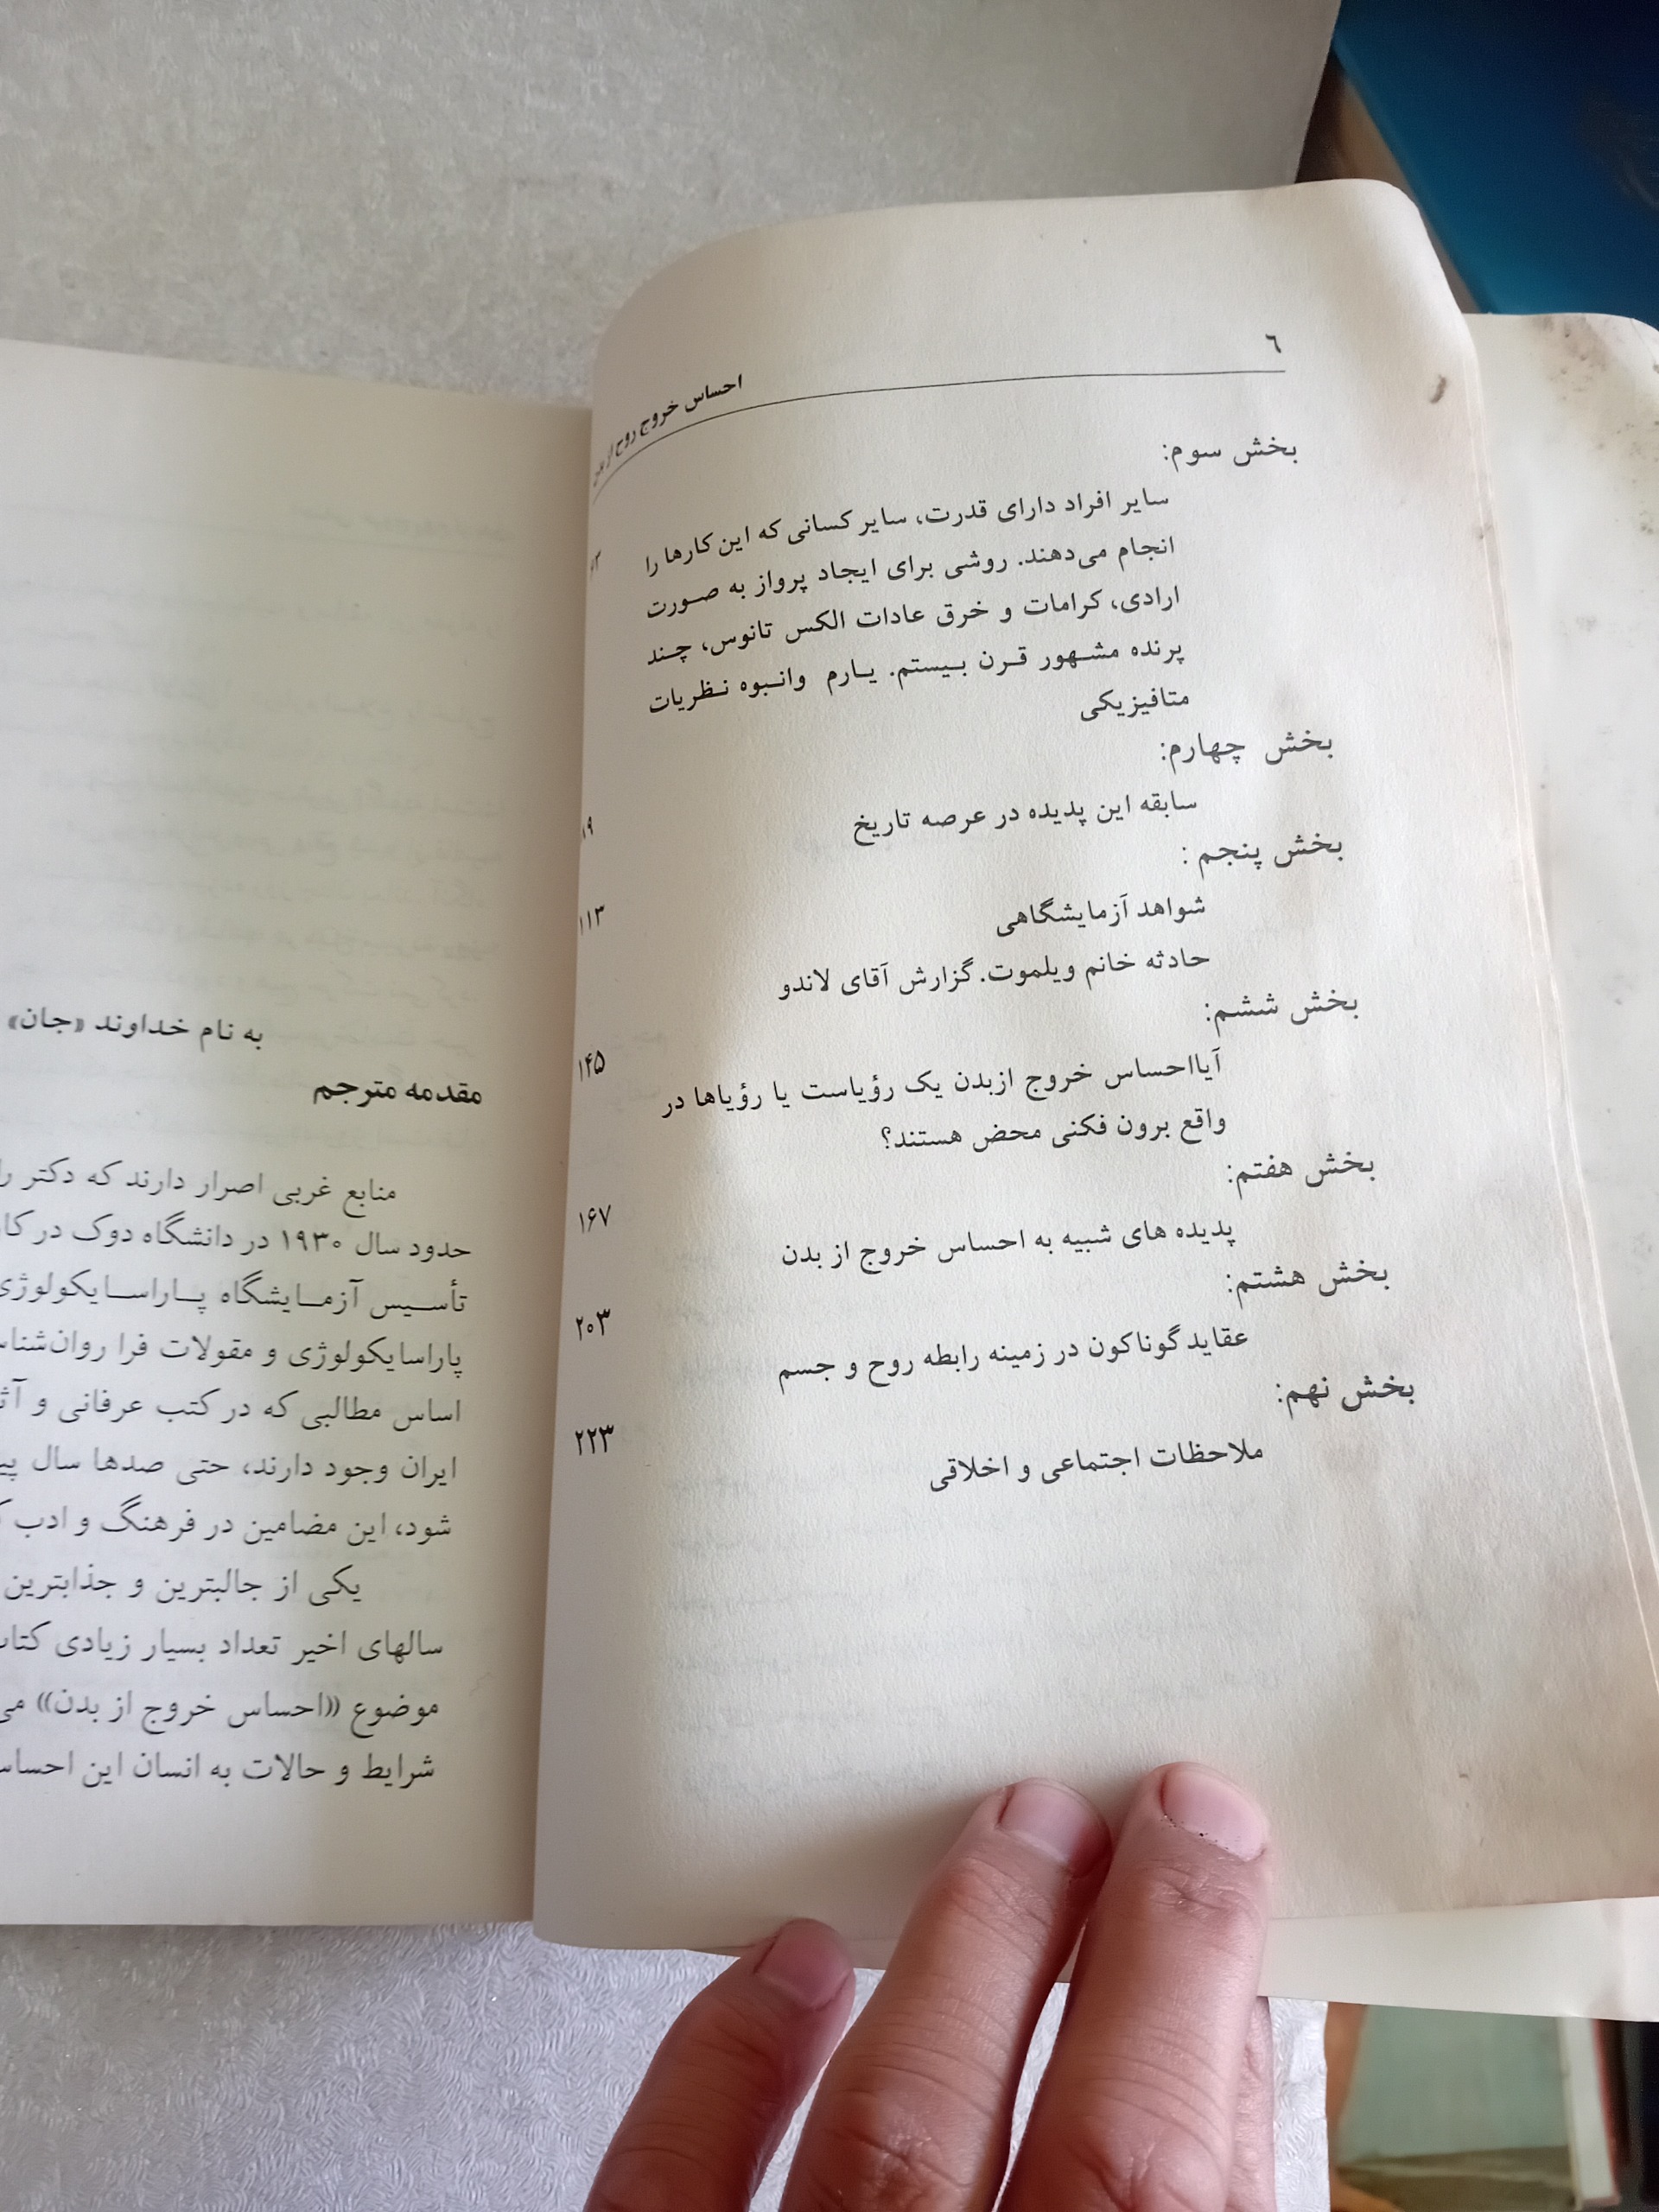 ٦
احساس خروج روح از بدن
بخش سوم:
سایر افراد دارای قدرت، سایر کسانی که این کارها را
انجام می‌دهند. روشی برای ایجاد پرواز به صورت
ارادی، کرامات و خرق عادات الکس تانوس، چند
پرنده مشهور قرن بیستم. یارم وانبوه نظریات
متافیزیکی
بخش چهارم:
سابقه این پدیده در عرصه تاریخ
بخش پنجم :
شواهد آزمایشگاهی ۱۱۳
حادثه خانم ویلموت. گزارش آقای لاندو
بخش ششم:
آیااحساس خروج ازبدن یک رؤیاست یا رؤیاها در ۱۴۵
واقع برون فکنی محض هستند؟
بخش هفتم:
پدیده های شبیه به احساس خروج از بدن ۱۶۷
بخش هشتم:
عقاید گوناکون در زمینه رابطه روح و جسم ۲۰۳
بخش نهم:
ملاحظات اجتماعی و اخلاقی ۲۲۳
به نام خداوند «جان»
مقدمه مترجم
منابع غربی اصرار دارند که دکتر
حدود سال ۱۹۳۰ در دانشگاه دوک در
تأسیس آزمایشگاه پاراسایکولوژی
پاراسایکولوژی و مقولات فرا
اساس مطالبی که در کتب عرفانی و
ایران وجود دارند، حتی صدها سال
شود، این مضامین در فرهنگ و ادب
یکی از جالبترین و جذابترین
سالهای اخیر تعداد بسیار زیادی
موضوع ((احساس خروج از بدن))
شرایط و حالات به انسان این